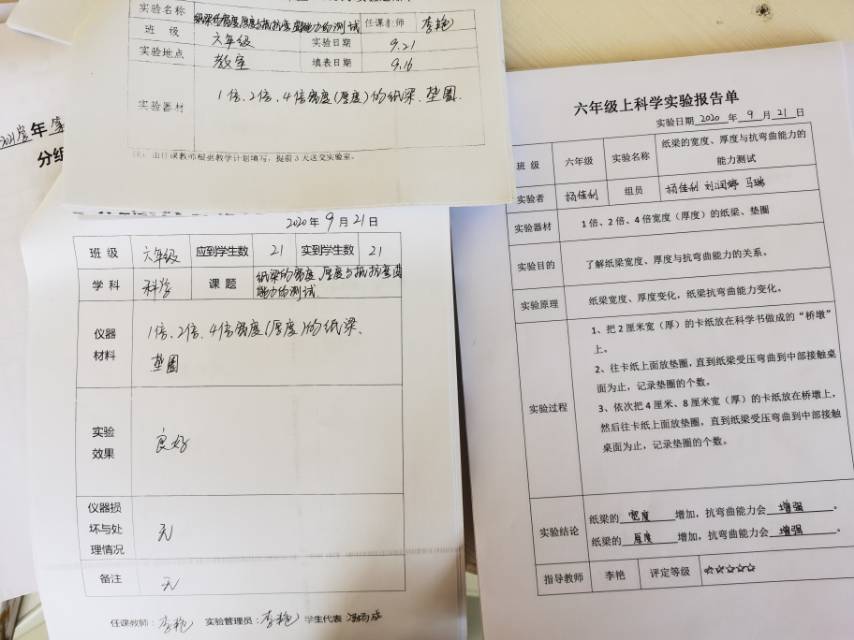 实验名称 纸梁的宽度、厚度与抗弯曲能力的测试 任课教师 李艳
班 级 六年级 实验日期 9.21
实验地点 教室 填表日期 9.16
实验器材 1倍、2倍、4倍宽度(厚度)的纸梁、垫圈.
(注)由任课教师根据教学计划填写,提前3天送交实验室。
年
分组
2020年 9月 21日
班 级 六年级 应到学生数 21 实到学生数 21
学 科 科学 课 题 纸梁的宽度、厚度与抵抗弯曲
能力的测试
仪器
材料
1倍、2倍、4倍宽度(厚度)的纸梁、
垫圈
实验
效果
良好
仪器损
坏与处
理情况
无
备注 无
任课教师:李艳 实验管理员:李艳 学生代表
六年级上科学实验报告单
实验日期 2020 年 9 月 21 日
班 级 六年级 实验名称 纸梁的宽度、厚度与抗弯曲能力的
能力测试
实验者 杨佳利 组员 杨佳利 刘润婷 马琳
实验器材 1倍、2倍、4倍宽度(厚度)的纸梁、垫圈
实验目的 了解纸梁宽度、厚度与抗弯曲能力的关系。
实验原理 纸梁宽度、厚度变化,纸梁抗弯曲能力变化。
实验过程
1、把2厘米宽(厚)的卡纸放在科学书做成的“桥墩”
上。
2、往卡纸上面放垫圈,直到纸梁受压弯曲到中部接触桌
面为止,记录垫圈的个数。
3、依次把4厘米、8厘米宽(厚)的卡纸放在桥墩上,
然后往卡纸上面放垫圈,直到纸梁受压弯曲到中部接触
桌面为止,记录垫圈的个数。
实验结论 纸梁的 宽度 增加,抗弯曲能力会 增强 。
纸梁的 厚度 增加,抗弯曲能力会 增强 。
指导教师 李艳 评定等级 ☆☆☆☆☆